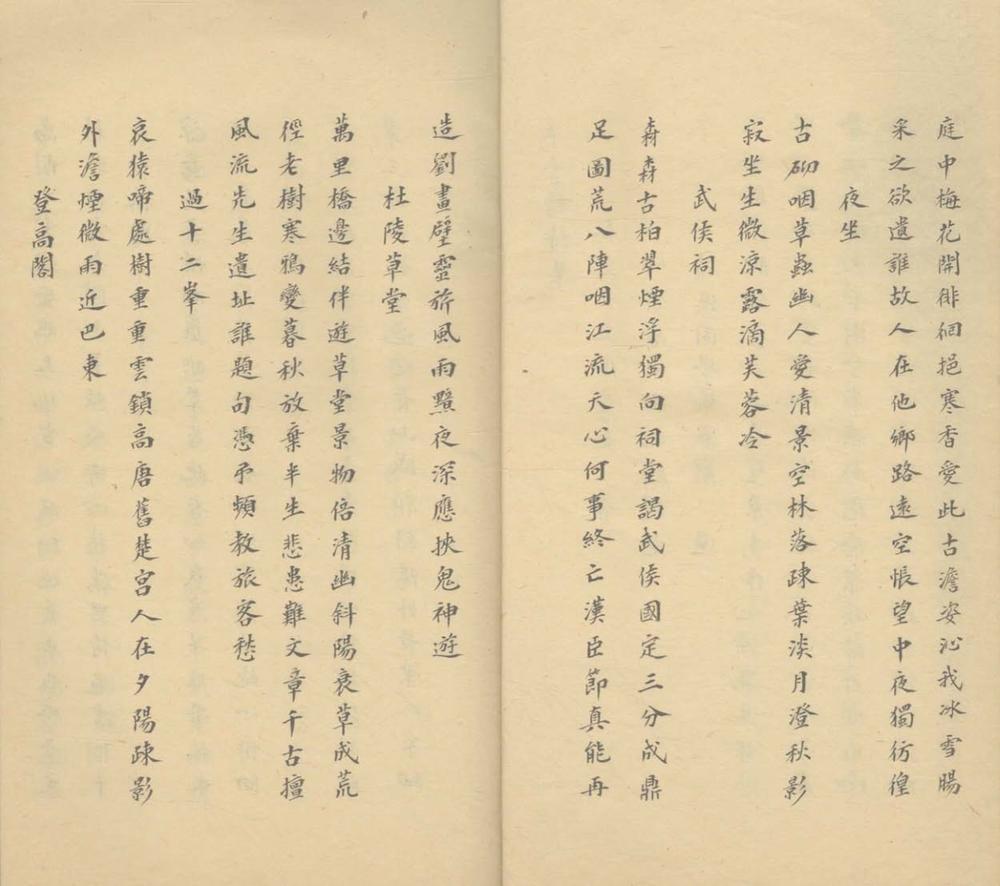 庭中梅花開徘徊挹寒香愛此古澹姿沁我冰雪腸
采之欲遺誰故人在他鄉路遠空悵望中夜獨彷徨
夜坐
古砌咽草蟲幽人愛清景空林落疎葉淡月澄秋影
寂坐生微涼露滴芙蓉冷
武侯祠
森森古柏翠煙浮獨向祠堂謁武侯國定三分成鼎
足圖荒八陣咽江流天心何事終亡漢臣節真能再
造劉畫壁靈旂風雨黯夜深應挾鬼神遊
杜陵草堂
萬里橋邊結伴遊草堂景物倍清幽斜陽衰草成荒
徑老樹寒鴉變暮秋放棄半生悲患難文章千古擅
風流先生遺址誰題句憑弔頻教旅客愁
過十二峯
哀猿啼處樹重重雲鎖高唐舊楚宮人在夕陽疎影
外澹煙微雨近巴東
登高閣